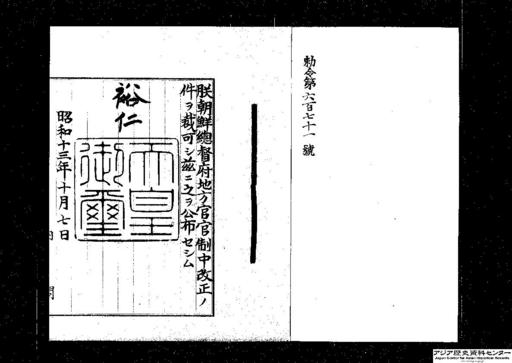 勅令第六百七十一號
朕朝鮮總督府地方官官制中改正ノ
件ヲ裁可シ茲ニ之ヲ公布セシム
裕仁
天皇
御璽
昭和十三年十月七日
アジア歴史資料センター
Japan Center for Asian Historical Records